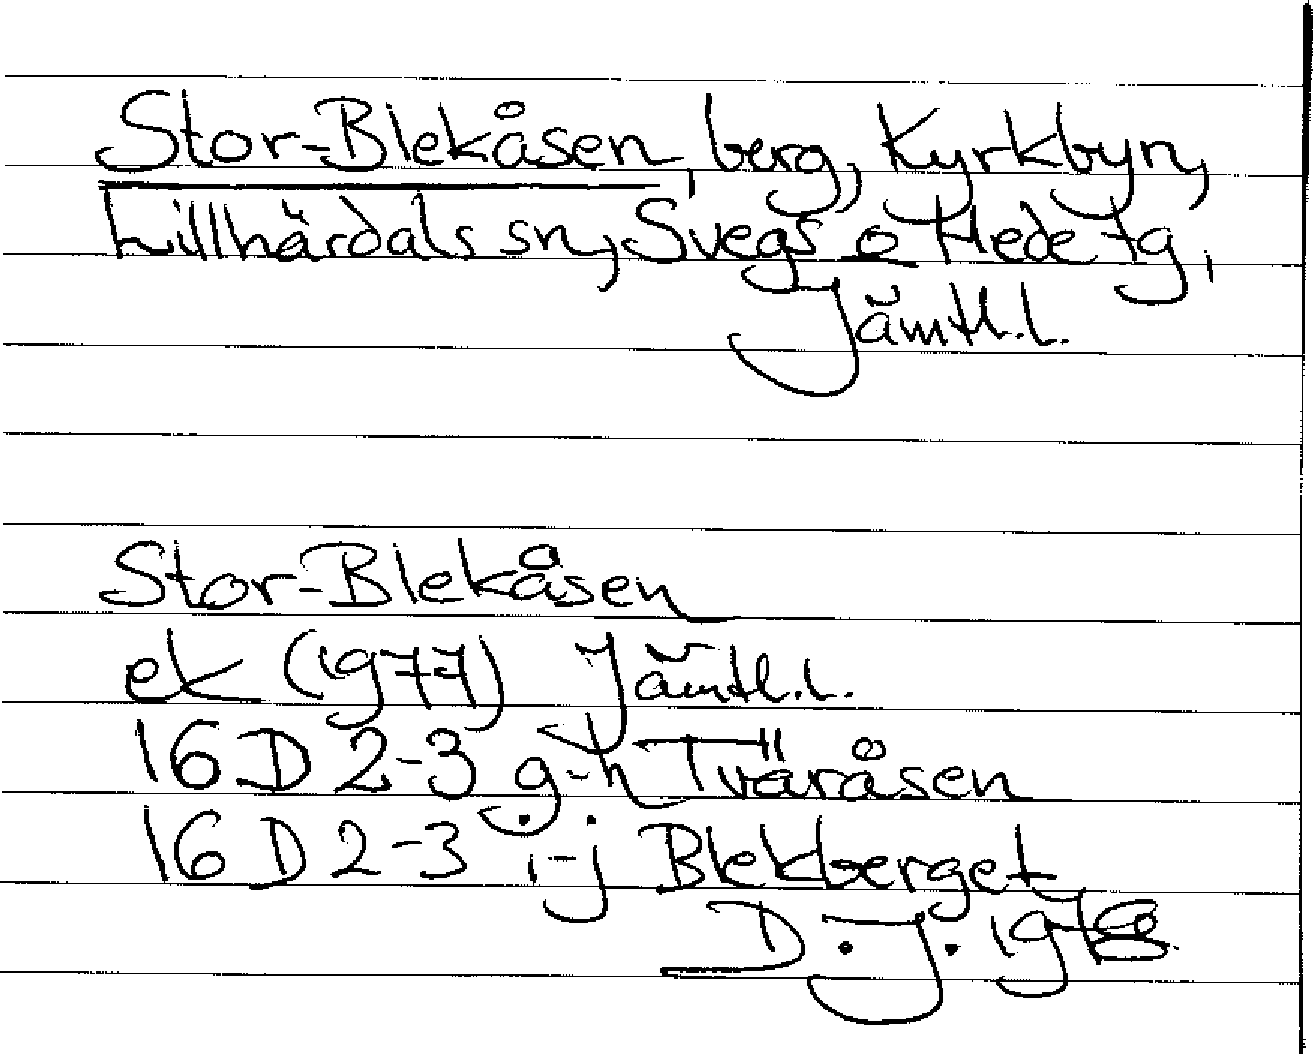 Stor-Blekåsen, berg, Kyrkbyn,
Lillhärdals sn, Svegs o Hede tg,
Jämtl.l.
Stor-Blekåsen
ek (1977) Jämtl.l.
16 D 2-3 g-h Tväråsen
16 D 2-3 i-j Blekberget
D.J.